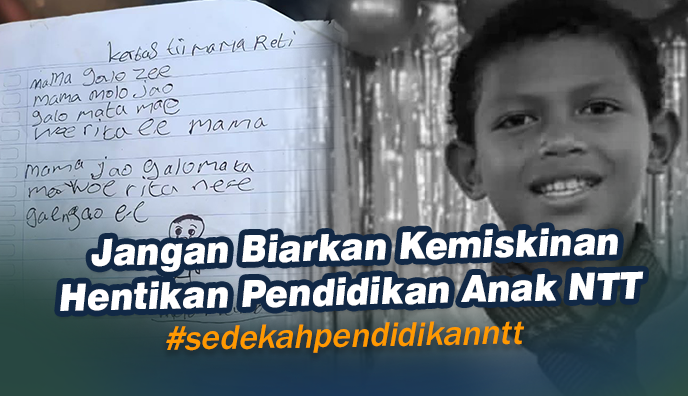 kertas tii mama Reti
mama galo zee
mama molo jao
galo mata mae
woe rita ee mama
mama jao galo mata
mae woe rita nee
gaengao ee
Jangan Biarkan Kemiskinan
Hentikan Pendidikan Anak NTT
#sedekahpendidikanntt